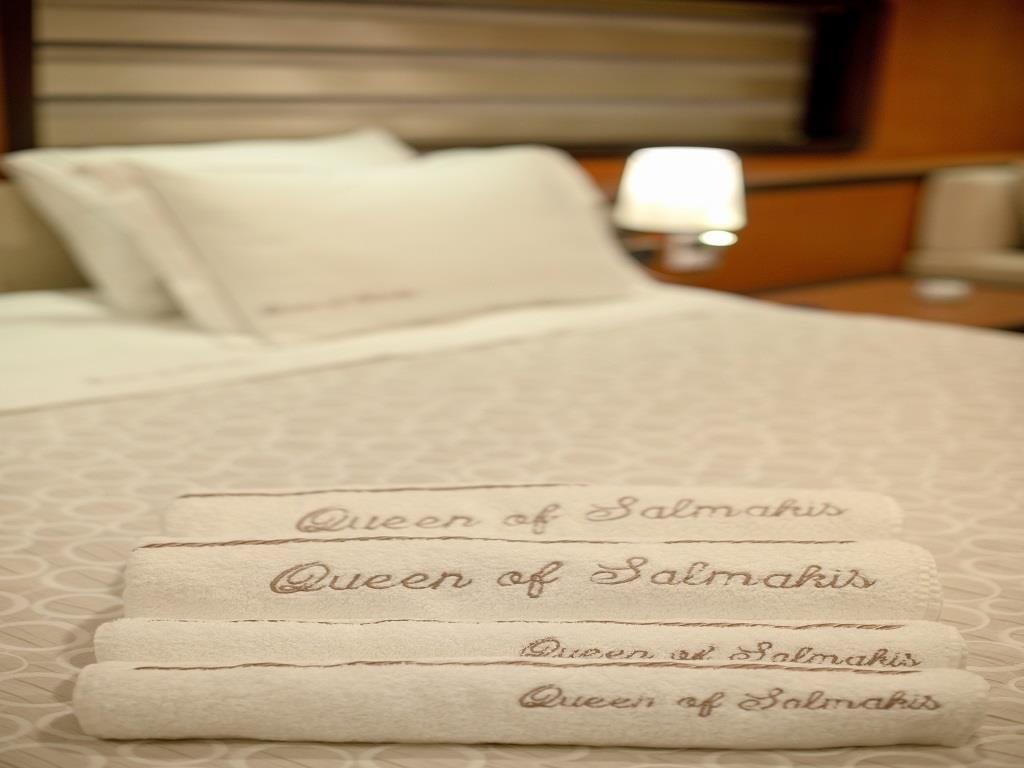 Queen of Salmakis
Queen of Salmakis
Queen of Salmakis
Queen of Salmakis